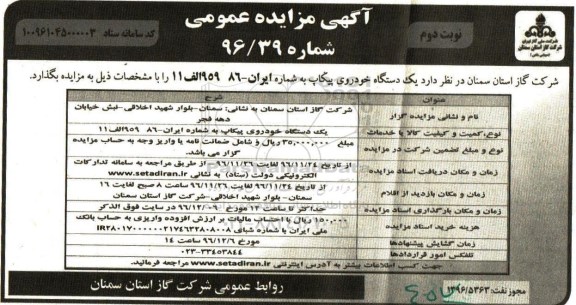 آگهی مزایده عمومی
شماره ۹۶/۳۹
نوبت دوم
کد سامانه ستاد ۱۰۰۹۶۱۰۴۵۰۰۰۰۰۳
شرکت گاز استان سمنان
شرکت گاز استان سمنان در نظر دارد یک دستگاه خودروی پیکاپ به شماره ایران-۸۶ ۹۵۹الف۱۱ را با مشخصات ذیل به مزایده بگذارد.
عنوان شرح
نام و نشانی مزایده گزار شرکت گاز استان سمنان به نشانی: سمنان-بلوار شهید اخلاقی-نبش خیابان دهه فجر
نوع،کمیت و کیفیت کالا یا خدمات یک دستگاه خودروی پیکاپ به شماره ایران-۸۶ ۹۵۹الف۱۱
نوع و مبلغ تضمین شرکت در مزایده مبلغ ۳۵,۰۰۰,۰۰۰ ریال و شامل ضمانت نامه یا واریز وجه به حساب مزایده گزار می باشد.
زمان و مکان دریافت اسناد مزایده از تاریخ ۹۶/۱۱/۲۴ لغایت ۹۶/۱۱/۲۶ از طریق مراجعه به سامانه تدارکات الکترونیکی دولت (ستاد) به نشانی www.setadiran.ir
زمان و مکان بازدید از اقلام از تاریخ ۹۶/۱۱/۲۴ لغایت ۹۶/۱۱/۲۶ ساعت ۸ صبح لغایت ۱۶ سمنان-بلوار شهید اخلاقی-شرکت گاز استان سمنان
زمان و مکان بارگذاری اسناد مزایده حداکثر تا ساعت ۱۲ مورخ ۹۶/۱۲/۰۶ در سایت فوق الذکر
هزینه خرید اسناد مزایده ۱۵۰,۰۰۰ ریال با احتساب مالیات بر ارزش افزوده واریزی به حساب بانک ملی ایران با شماره شبای
زمان گشایش پیشنهادها مورخ ۹۶/۱۲/۶ ساعت ۱۴
تلفکس امور قراردادها ۰۲۳-۳۳۴۵۳۸۴۴
جهت کسب اطلاعات بیشتر به آدرس اینترنتی www.setadiran.ir مراجعه فرمائید.
مجوز نفت: ۱۳۹۶/۵۳۶۳
روابط عمومی شرکت گاز استان سمنان